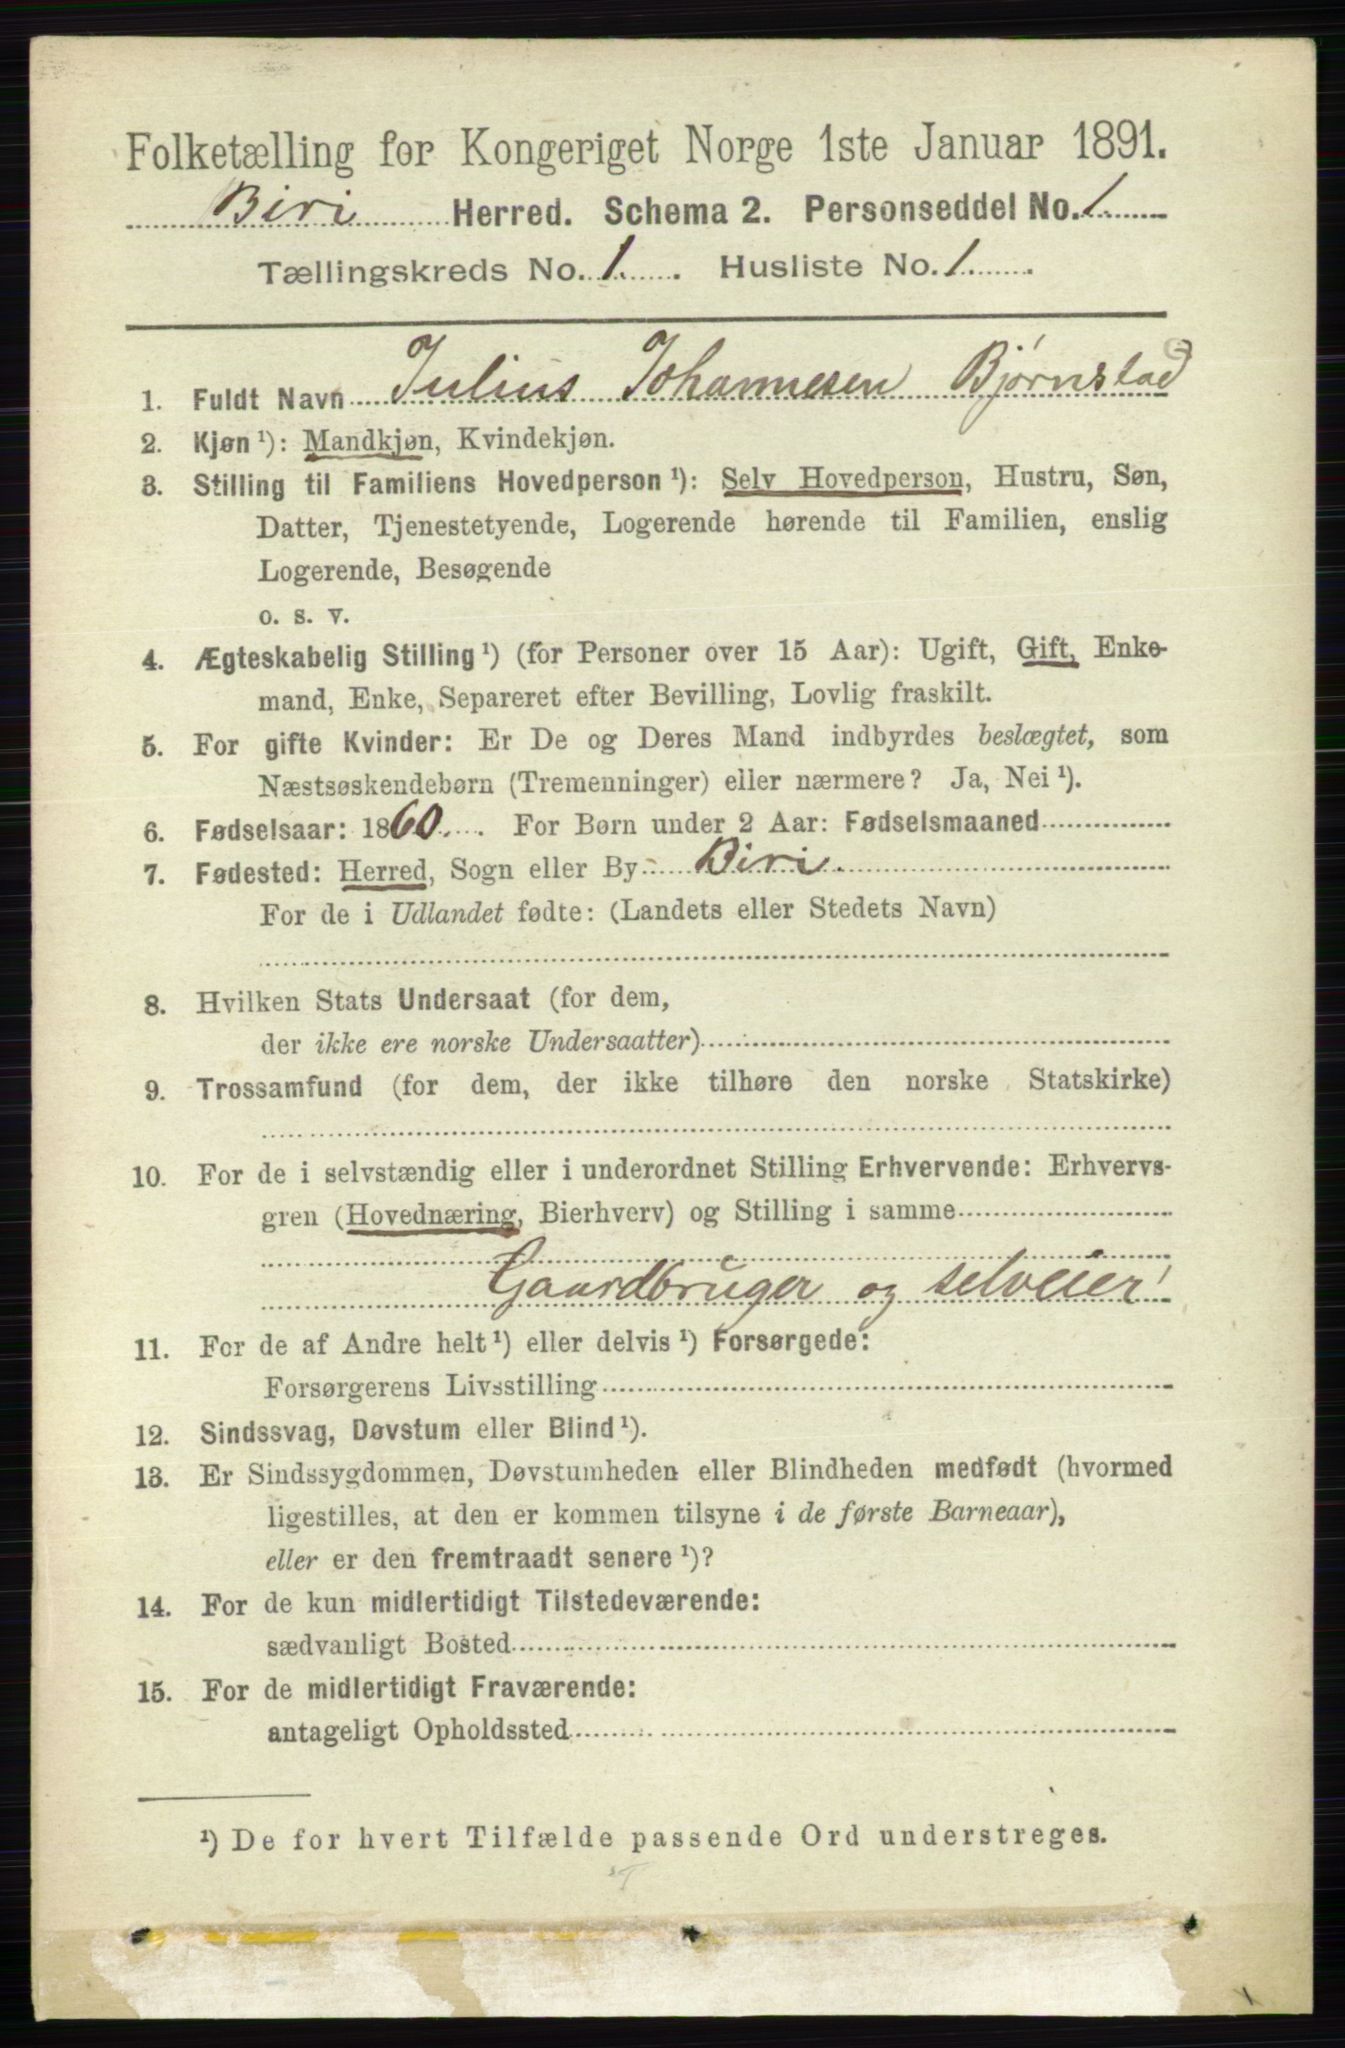 Folketælling for Kongeriget Norge 1ste Januar 1891.
Biri Herred. Schema 2. Personseddel No. 1
Tællingskreds No. 1. Husliste No. 1
1. Fuldt Navn Julius Johannesen Bjørnstad
2. Kjøn ¹): Mandkjøn, Kvindekjøn.
3. Stilling til Familiens Hovedperson ¹): Selv Hovedperson, Hustru, Søn,
Datter, Tjenestetyende, Logerende hørende til Familien, enslig
Logerende, Besøgende
o. s. v.
4. Ægteskabelig Stilling ¹) (for Personer over 15 Aar): Ugift, Gift, Enke-
mand, Enke, Separeret efter Bevilling, Lovlig fraskilt.
5. For gifte Kvinder: Er De og Deres Mand indbyrdes beslægtet, som
Næstsøskendebørn (Tremenninger) eller nærmere? Ja, Nei ¹).
6. Fødselsaar: 1860. For Børn under 2 Aar: Fødselsmaaned
7. Fødested: Herred, Sogn eller By Biri.
For de i Udlandet fødte: (Landets eller Stedets Navn)
8. Hvilken Stats Undersaat (for dem,
der ikke ere norske Undersaatter)
9. Trossamfund (for dem, der ikke tilhøre den norske Statskirke)
10. For de i selvstændig eller i underordnet Stilling Erhvervende: Erhvervs-
gren (Hovednæring, Bierhverv) og Stilling i samme
Gaardbruger og selveier
11. For de af Andre helt ¹) eller delvis ¹) Forsørgede:
Forsørgerens Livsstilling
12. Sindssvag, Døvstum eller Blind ¹).
13. Er Sindssygdommen, Døvstumheden eller Blindheden medfødt (hvormed
ligestilles, at den er kommen tilsyne i de første Barneaar),
eller er den fremtraadt senere ¹)?
14. For de kun midlertidigt Tilstedeværende:
sædvanligt Bosted
15. For de midlertidigt Fraværende:
antageligt Opholdssted
¹) De for hvert Tilfælde passende Ord understreges.